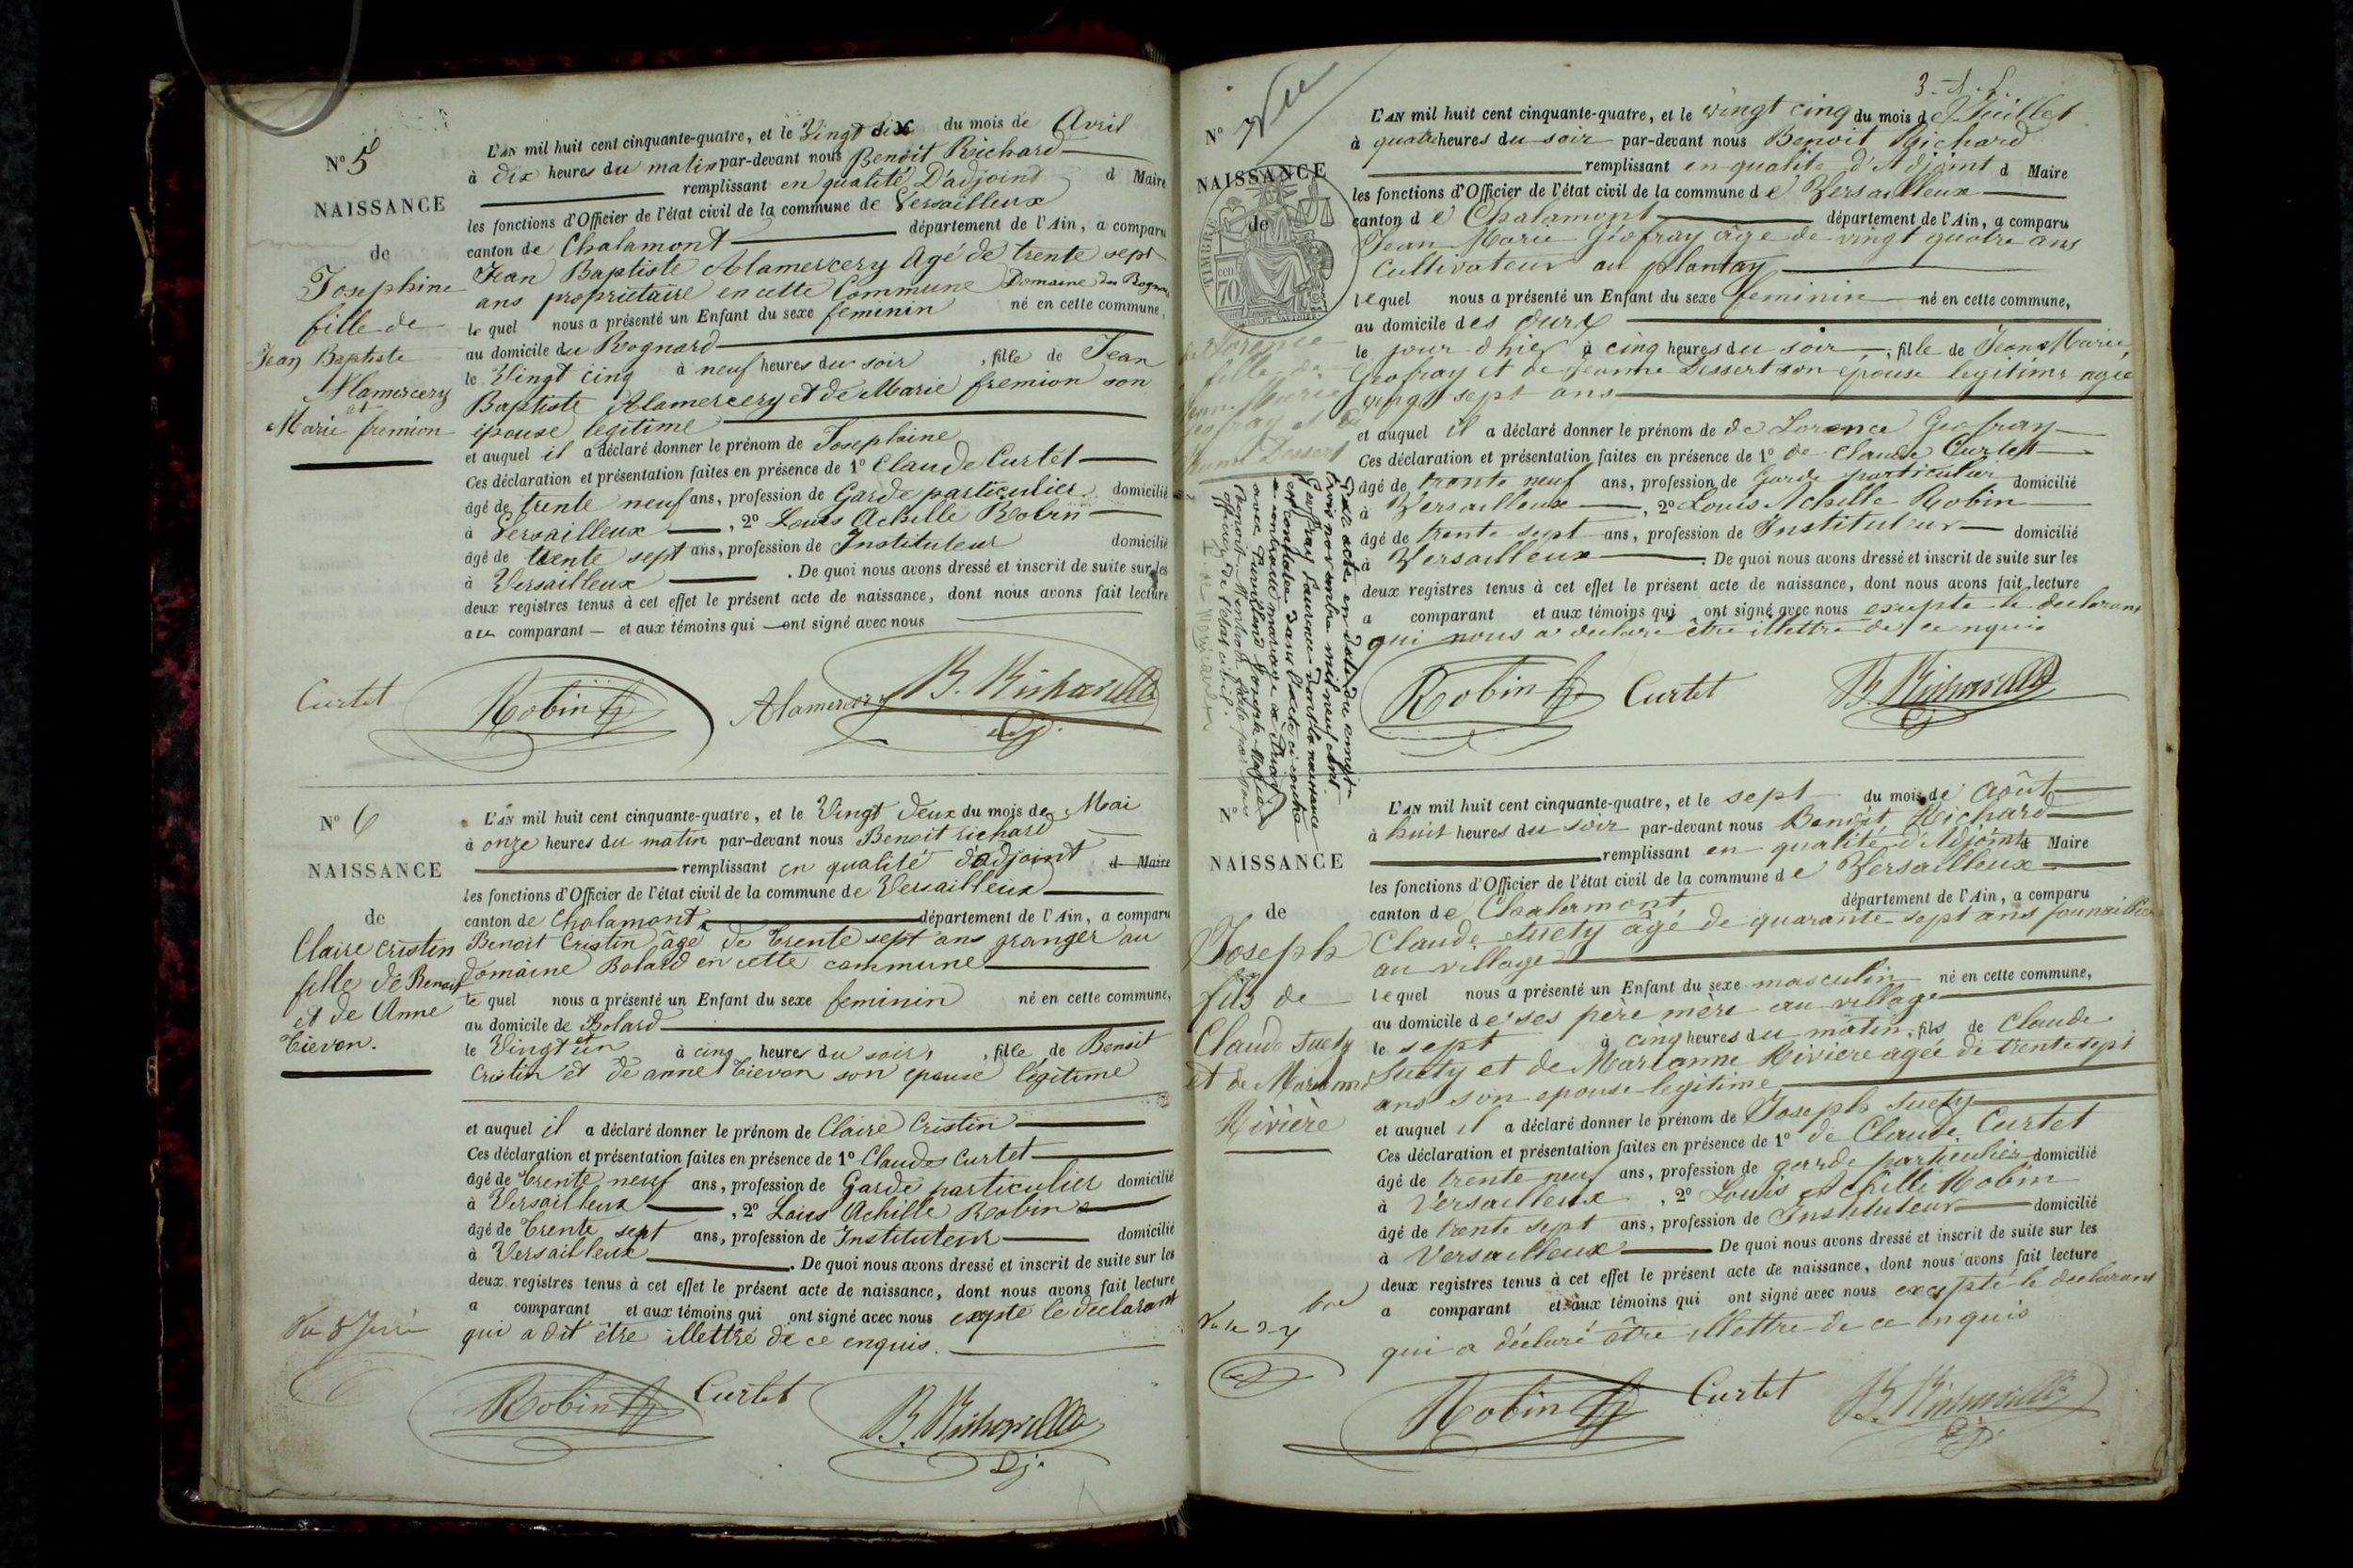 N° 5
NAISSANCE
de
Josephine
fille de
Jean Baptiste
Alamercery
et
Marie fremion
L'AN mil huit cent cinquante-quatre, et le Vingt six du mois de Avril
à dix heures du matin par-devant nous Benoit Richard
remplissant en qualité D'adjoint d Maire
les fonctions d'Officier de l'état civil de la commune de Versailleux
canton de Chalamont département de l'Ain, a comparu
Jean Baptiste Alamercery Agé de trente sept
ans propriétaire en cette Commune Domaine du
le quel nous a présenté un Enfant du sexe feminin né en cette commune,
au domicile du Rognard
le Vingt cinq à neuf heures du soir, fille de Jean
Baptiste Alamercery et de Marie fremion son
épouse legitime
et auquel il a déclaré donner le prénom de Josephine
Ces déclaration et présentation faites en présence de 1° Claude Curtet
âgé de trente neuf ans, profession de Garde particulier domicilié
à Versailleux, 2° Louis Achille Robin
âgé de trente sept ans, profession de Instituteur domicilié
à Versailleux. De quoi nous avons dressé et inscrit de suite sur les
deux registres tenus à cet effet le présent acte de naissance, dont nous avons fait lecture
au comparant et aux témoins qui ont signé avec nous
Curtet Robin Alamercery B. Richard
adj.
N° 6
NAISSANCE
de
Claire Cristin
fille de Benoit
et de Anne
Tievon.
L'AN mil huit cent cinquante-quatre, et le Vingt deux du mois de Mai
à onze heures du matin par-devant nous Benoit richard
remplissant en qualité d'adjoint d Maire
les fonctions d'Officier de l'état civil de la commune de Versailleux
canton de Chalamont département de l'Ain, a comparu
Benoit Cristin âgé de trente sept ans granger au
domaine Bolard en cette commune
le quel nous a présenté un Enfant du sexe feminin né en cette commune,
au domicile de Bolard
le Vingt et un à cinq heures du soir, fille de Benoit
Cristin et de anne Tievon son epouse légitime
et auquel il a déclaré donner le prénom de Claire Cristin
Ces déclaration et présentation faites en présence de 1° Claude Curtet
âgé de trente neuf ans, profession de Garde particulier domicilié
à Versailleux, 2° Louis Achille Robin
âgé de trente sept ans, profession de Instituteur domicilié
à Versailleux. De quoi nous avons dressé et inscrit de suite sur les
deux registres tenus à cet effet le présent acte de naissance, dont nous avons fait lecture
a comparant et aux témoins qui ont signé avec nous exepte le declarant
qui a dit être illettré de ce enquis.
Robin Curtet B. Richard
adj.
N° 7
Vu
NAISSANCE
de
TIMBRE
70
fille de
Jean Marie
Geofray et de
Dessert
L'AN mil huit cent cinquante-quatre, et le vingt cinq du mois de Juillet
à quatre heures du soir par-devant nous Benoit Richard
remplissant en qualité d'Adjoint d Maire
les fonctions d'Officier de l'état civil de la commune de Versailleux
canton de Chalamont département de l'Ain, a comparu
Jean Marie Géofray âgé de vingt quatre ans
Cultivateur au plantay
lequel nous a présenté un Enfant du sexe feminin né en cette commune,
au domicile des
le jour d'hier à cinq heures du soir, fille de Jean Marie
Geofray et de Jeanne Dessert son épouse legitime agée
vingt sept ans
et auquel il a déclaré donner le prénom de de Lorence Geofray
Ces déclaration et présentation faites en présence de 1° de Claude Curtet
âgé de trente neuf ans, profession de Garde particulier domicilié
à Versailleux, 2° Louis Achille Robin
âgé de trente sept ans, profession de Instituteur domicilié
à Versailleux. De quoi nous avons dressé et inscrit de suite sur les
deux registres tenus à cet effet le présent acte de naissance, dont nous avons fait lecture
a comparant et aux témoins qui ont signé avec nous exepte le declarant
qui nous a declaré être illettre de ce enquis
Robin Curtet B Richard
adj
Par acte en date du vingt
trois novembre mil neuf cent
Geoffray Laurence dont la naissance
est constatée dans l'acte ci-contre
a contracté mariage à
avec Joseph
Mention faite par nous
officier de l'état civil.
N°
NAISSANCE
de
Joseph
fils de
Claude Suety
et de Marianne
Rivière
L'AN mil huit cent cinquante-quatre, et le sept du mois de Août
à huit heures du soir par-devant nous Benoit Richard
remplissant en qualité d'Adjoint d Maire
les fonctions d'Officier de l'état civil de la commune de Versailleux
canton de Chalamont département de l'Ain, a comparu
Claude Suety âgé de quarante sept ans journaillier
au village
lequel nous a présenté un Enfant du sexe masculin né en cette commune,
au domicile de ses père mère au village
le sept à cinq heures du matin, fils de Claude
Suety et de Marianne Riviere agée de trente sept
ans son epouse legitime
et auquel il a déclaré donner le prénom de Joseph Suety
Ces déclaration et présentation faites en présence de 1° de Claude Curtet
âgé de trente neuf ans, profession de garde particulier domicilié
à Versailleux, 2° Louis Achille Robin
âgé de trente sept ans, profession de Instituteur domicilié
à Versailleux De quoi nous avons dressé et inscrit de suite sur les
deux registres tenus à cet effet le présent acte de naissance, dont nous avons fait lecture
a comparant et aux témoins qui ont signé avec nous excepté le declarant
qui a déclaré être illettre de ce enquis
Robin Curtet B. Richard
adj